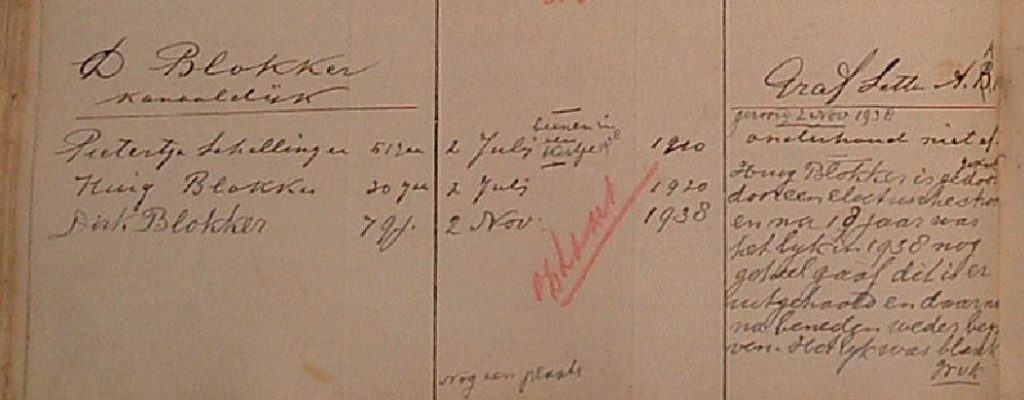 D Blokker
Kanaaldijk
Pietertje Schellinger 51 jaa 2 Juli beenen in kistje 1920
Huig Blokker 20 jaa 2 Juli 1920
Dirk Blokker 79 j. 2 Nov. 1938
Nog een plaats
Graf Letter A. B.
2 Nov 1938
onderhoud niet af.
Huig Blokker is gedood
door een electrische stroo
en na 18 jaar was
het lyk in 1938 nog
geheel gaaf dit is er
uitgehaald en daarna
na beneden weder beg
ven. Het lyk was blank